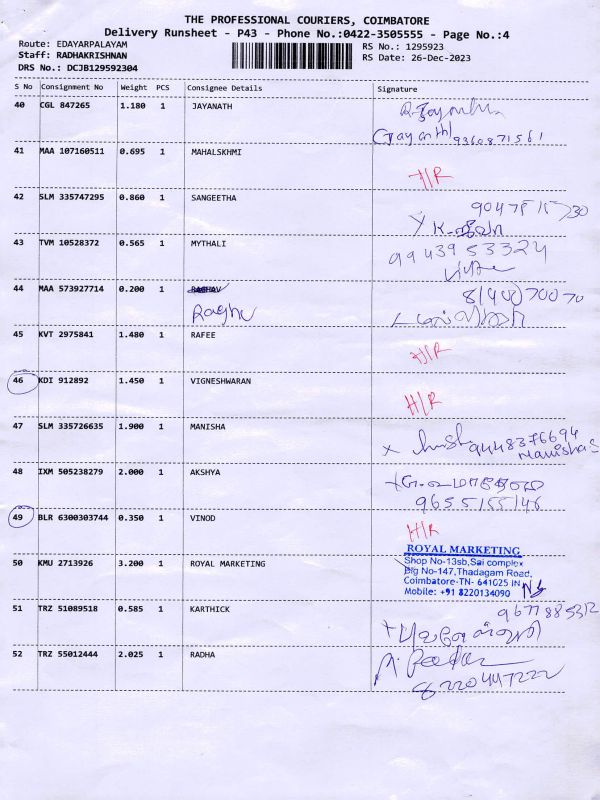 THE PROFESSIONAL COURIERS, COIMBATORE
Delivery Runsheet - P43 - Phone No.:0422-3505555 - Page No.:4
Route: EDAYARPALAYAM
RS No.: 1295923
Staff: RADHAKRISHNAN
RS Date: 26-Dec-2023
DRS No.: DCJB129592304
S No Consignment No Weight PCS Consignee Details Signature
40 CGL 847265 1.180 1 JAYANATH
9360871561
41 MAA 107160511 0.695 1 MAHALSKHMI
H/R
42 SLM 335747295 0.860 1 SANGEETHA
43 TVM 10528372 0.565 1 MYTHALI
9943953324
44 MAA 573927714 0.200 1 RAGHAV
Raghu
45 KVT 2975841 1.480 1 RAFEE
H/R
46 KDI 912892 1.450 1 VIGNESHWARAN
H/R
47 SLM 335726635 1.900 1 MANISHA
9448376694
Manisha S
48 IXM 505238279 2.000 1 AKSHYA
9655155146
49 BLR 6300303744 0.350 1 VINOD
H/R
50 KMU 2713926 3.200 1 ROYAL MARKETING
ROYAL MARKETING
Shop No-13sb,Sai complex
Big No-147,Thadagam Road,
Coimbatore-TN- 641025 IN
Mobile: +91 8220134090
51 TRZ 51089518 0.585 1 KARTHICK
9677885312
52 TRZ 55012444 2.025 1 RADHA
8220447222